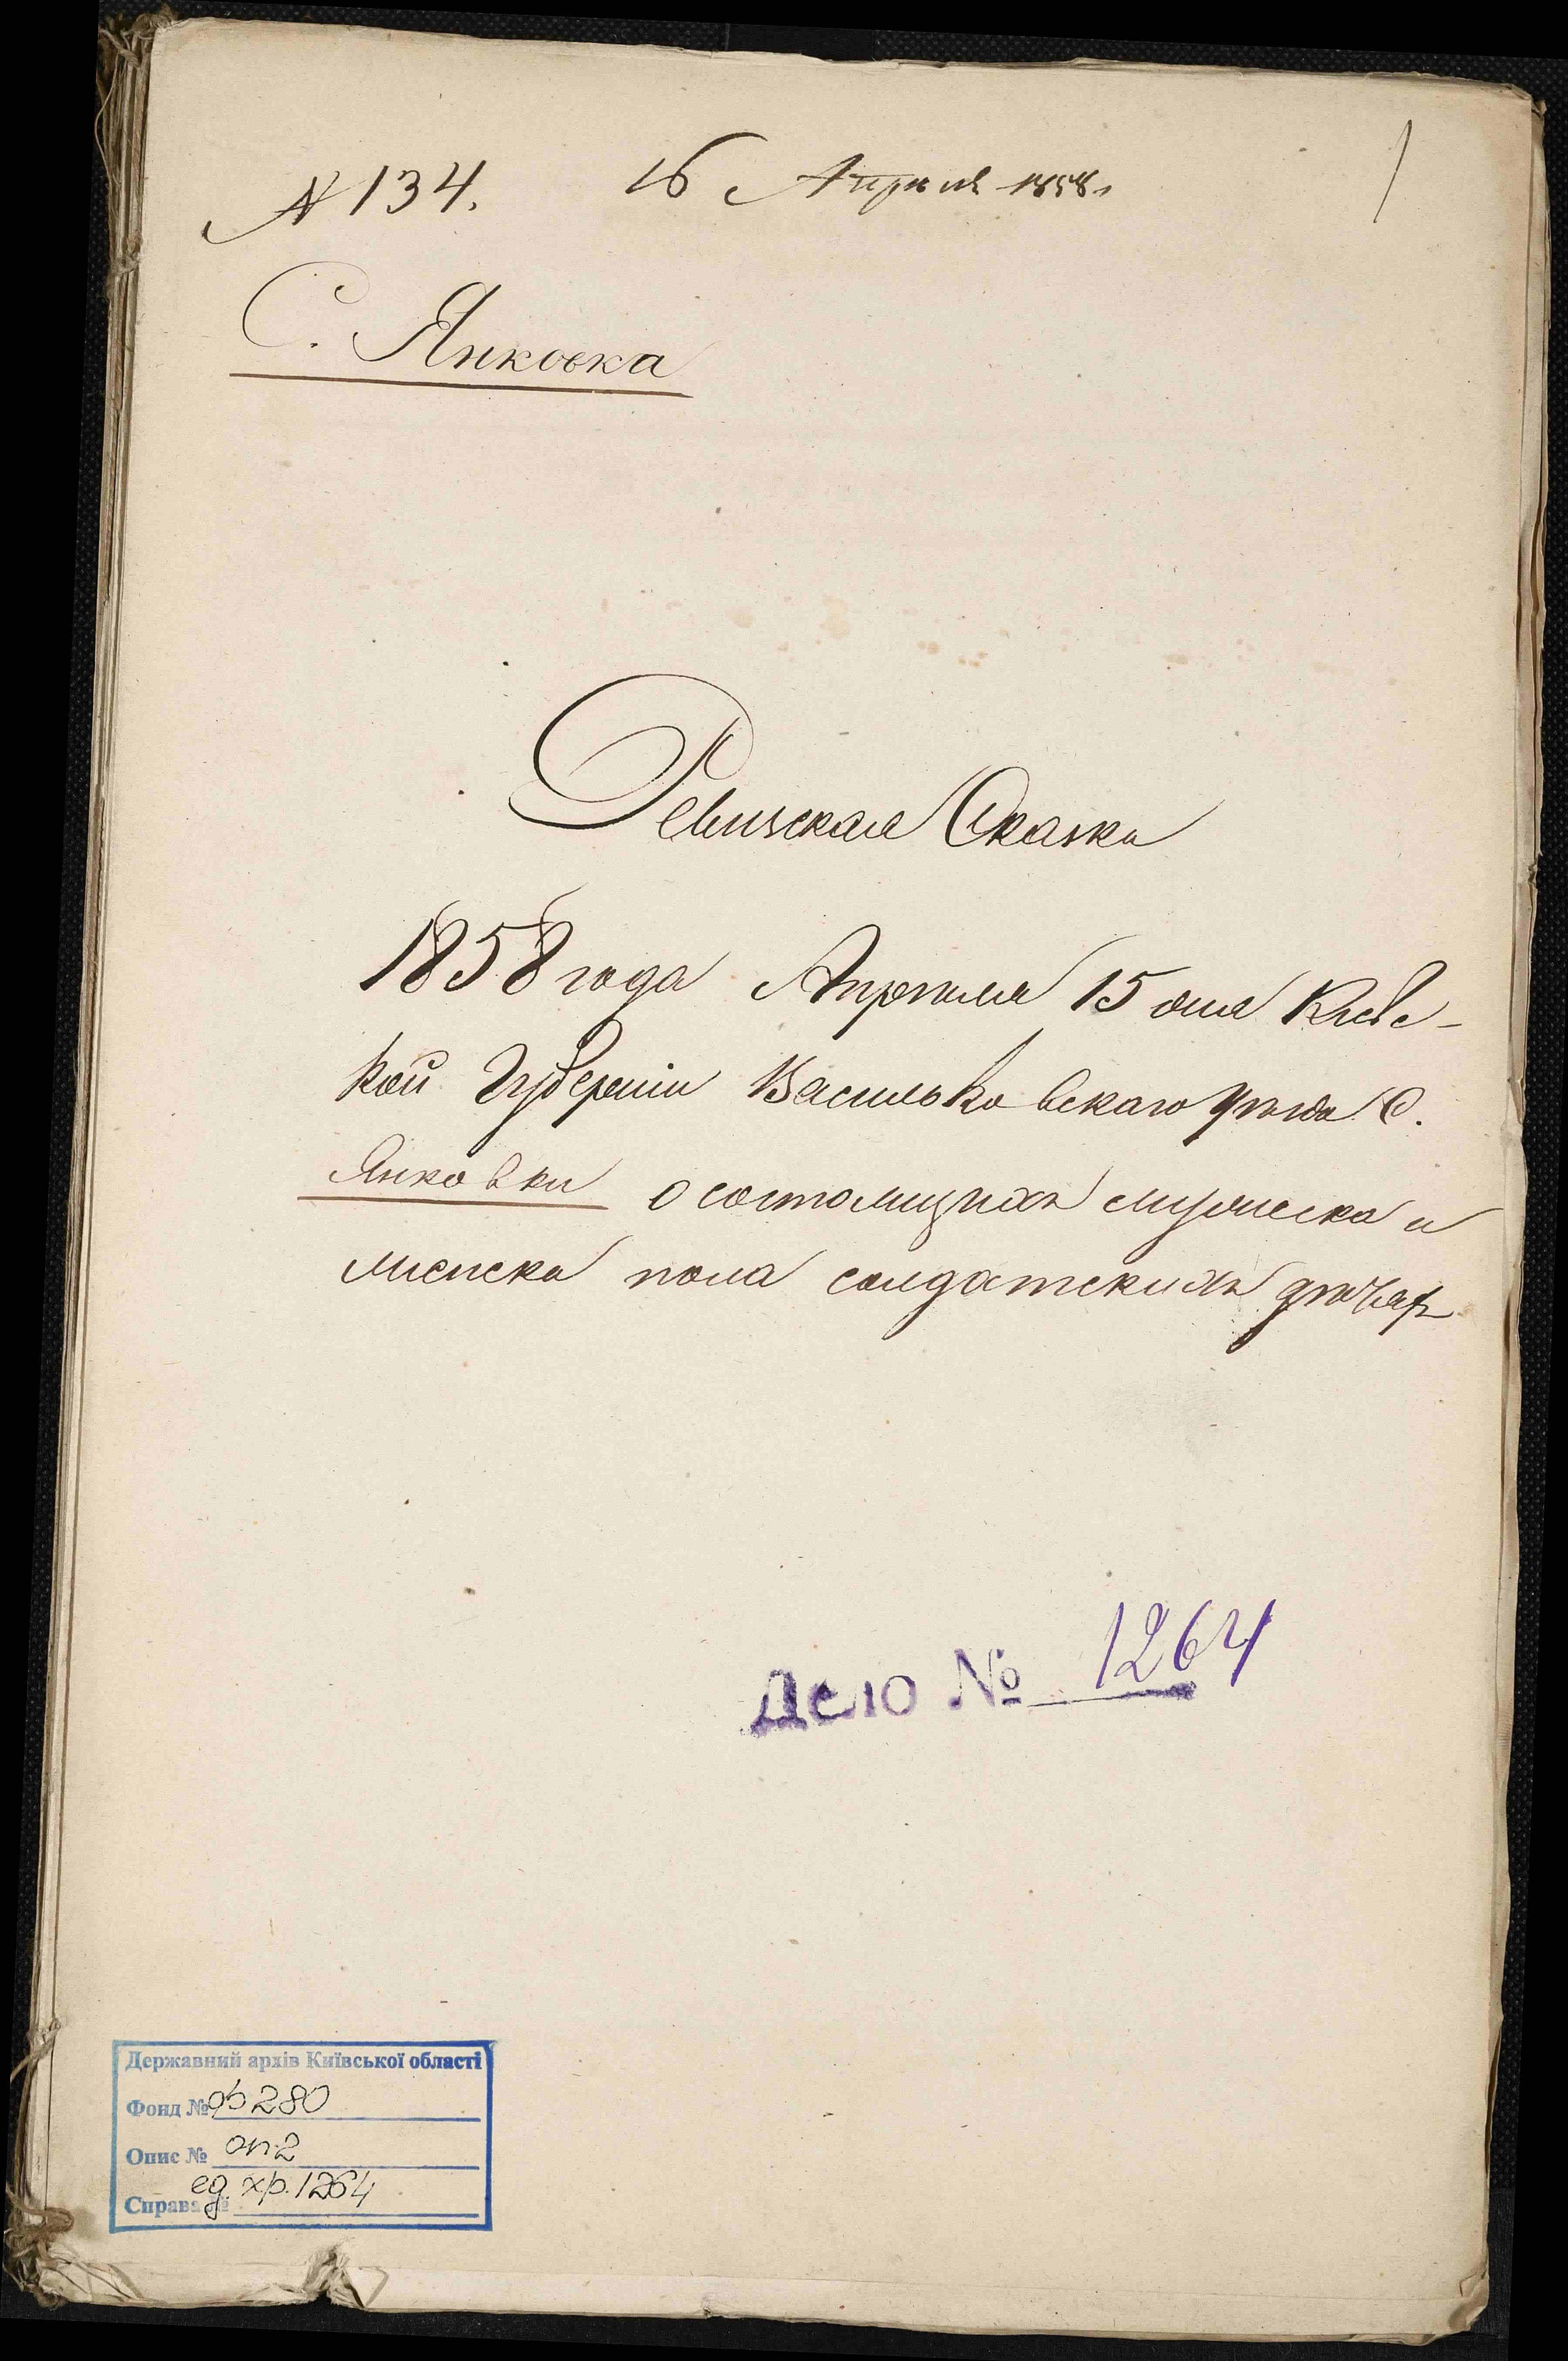 № 134. 16 Апрѣля 1858 г. 1
С. Янковка
Ревизская Сказка
1858 года Апрѣля 15 дня Кіевс-
кой Губерніи Васильковскаго уѣзда С.
Янковки о состоящихъ мужеска и
женска пола солдатскихъ дѣтяхъ
Дело № 1264
Державний архів Київської області
Фонд № ф 280
Опис № оп 2
Справа № ед. хр. 1264